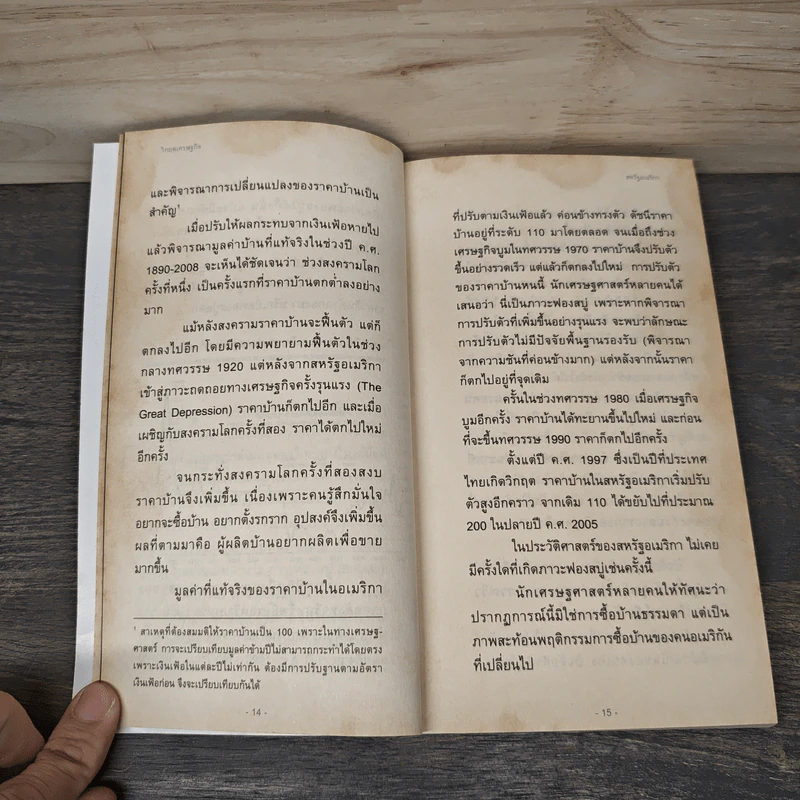 วิกฤตเศรษฐกิจ
และพิจารณาการเปลี่ยนแปลงของราคาบ้านเป็น
สำคัญ¹
เมื่อปรับให้ผลกระทบจากเงินเฟ้อหายไป
แล้วพิจารณามูลค่าบ้านที่แท้จริงในช่วงปี ค.ศ.
1890-2008 จะเห็นได้ชัดเจนว่า ช่วงสงครามโลก
ครั้งที่หนึ่ง เป็นครั้งแรกที่ราคาบ้านตกต่ำลงอย่าง
มาก
แม้หลังสงครามราคาบ้านจะฟื้นตัว แต่ก็
ตกลงไปอีก โดยมีความพยายามฟื้นตัวในช่วง
กลางทศวรรษ 1920 แต่หลังจากสหรัฐอเมริกา
เข้าสู่ภาวะถดถอยทางเศรษฐกิจครั้งรุนแรง (The
Great Depression) ราคาบ้านก็ตกไปอีก และเมื่อ
เผชิญกับสงครามโลกครั้งที่สอง ราคาได้ตกไปใหม่
อีกครั้ง
จนกระทั่งสงครามโลกครั้งที่สองสงบ
ราคาบ้านจึงเพิ่มขึ้น เนื่องเพราะคนรู้สึกมั่นใจ
อยากจะซื้อบ้าน อยากตั้งรกราก อุปสงค์จึงเพิ่มขึ้น
ผลที่ตามมาคือ ผู้ผลิตบ้านอยากผลิตเพื่อขาย
มากขึ้น
มูลค่าที่แท้จริงของราคาบ้านในอเมริกา
¹ สาเหตุที่ต้องสมมติให้ราคาบ้านเป็น 100 เพราะในทางเศรษฐ-
ศาสตร์ การจะเปรียบเทียบมูลค่าข้ามปีไม่สามารถกระทำได้โดยตรง
เพราะเงินเฟ้อในแต่ละปีไม่เท่ากัน ต้องมีการปรับฐานตามอัตรา
เงินเฟ้อก่อน จึงจะเปรียบเทียบกันได้
- 14 -
สหรัฐอเมริกา
ที่ปรับตามเงินเฟ้อแล้ว ค่อนข้างทรงตัว ดัชนีราคา
บ้านอยู่ที่ระดับ 110 มาโดยตลอด จนเมื่อถึงช่วง
เศรษฐกิจบูมในทศวรรษ 1970 ราคาบ้านจึงปรับตัว
ขึ้นอย่างรวดเร็ว แต่แล้วก็ตกลงไปใหม่ การปรับตัว
ของราคาบ้านหนนี้ นักเศรษฐศาสตร์หลายคนได้
เสนอว่า นี่เป็นภาวะฟองสบู่ เพราะหากพิจารณา
การปรับตัวที่เพิ่มขึ้นอย่างรุนแรง จะพบว่าลักษณะ
การปรับตัวไม่มีปัจจัยพื้นฐานรองรับ (พิจารณา
จากความชันที่ค่อนข้างมาก) แต่หลังจากนั้นราคา
ก็ตกไปอยู่ที่จุดเดิม
ครั้นในช่วงทศวรรษ 1980 เมื่อเศรษฐกิจ
บูมอีกครั้ง ราคาบ้านได้ทะยานขึ้นไปใหม่ และก่อน
ที่จะขึ้นทศวรรษ 1990 ราคาก็ตกไปอีกครั้ง
ตั้งแต่ปี ค.ศ. 1997 ซึ่งเป็นปีที่ประเทศ
ไทยเกิดวิกฤต ราคาบ้านในสหรัฐอเมริกาเริ่มปรับ
ตัวสูงอีกคราว จากเดิม 110 ได้ขยับไปที่ประมาณ
200 ในปลายปี ค.ศ. 2005
ในประวัติศาสตร์ของสหรัฐอเมริกา ไม่เคย
มีครั้งใดที่เกิดภาวะฟองสบู่เช่นครั้งนี้
นักเศรษฐศาสตร์หลายคนให้ทัศนะว่า
ปรากฏการณ์นี้มิใช่การซื้อบ้านธรรมดา แต่เป็น
ภาพสะท้อนพฤติกรรมการซื้อบ้านของคนอเมริกัน
ที่เปลี่ยนไป
- 15 -